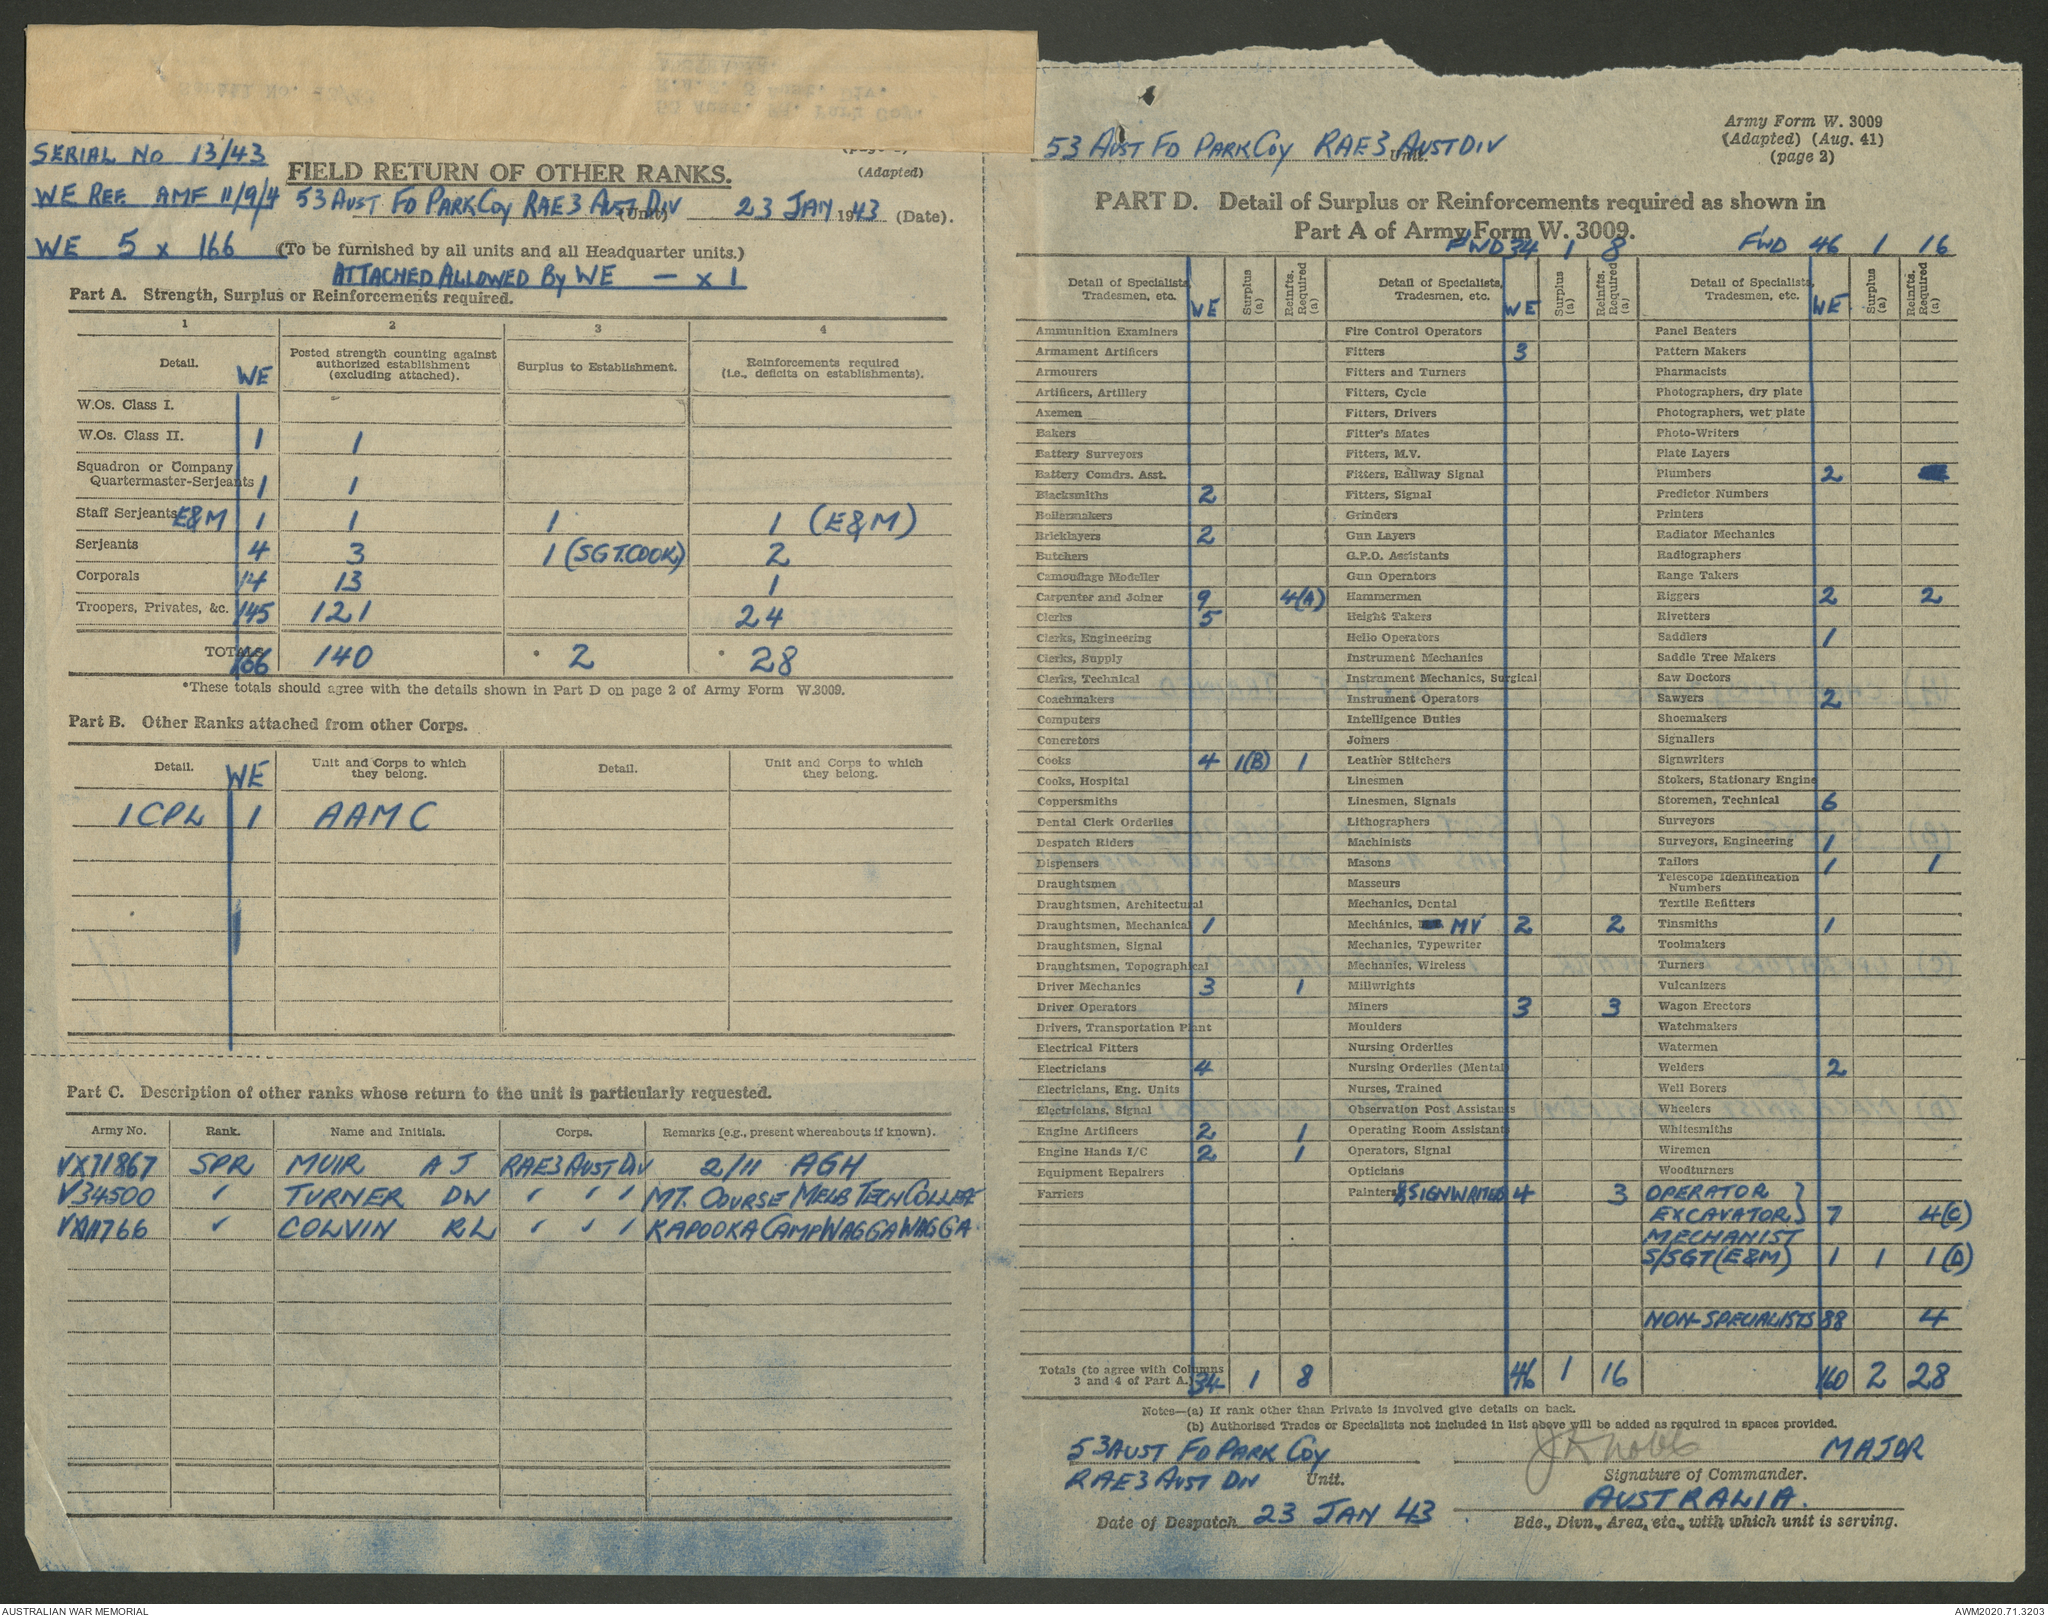 SERIAL NO 13/43
WE REF AMF 11/9/4
WE 5 x 166
(Adapted)
FIELD RETURN OF OTHER RANKS.
53 AUST FD PARK COY RAE 3 AUST DIV (Unit) 23 JAN 1943 (Date).
(To be furnished by all units and all Headquarter units.)
ATTACHED ALLOWED BY WE — x 1
Part A. Strength, Surplus or Reinforcements required.
1 2 3 4
Detail. WE Posted strength counting against authorized establishment (excluding attached). Surplus to Establishment. Reinforcements required (i.e., deficits on establishments).
W.Os. Class I.
W.Os. Class II. 1 1
Squadron or Company
Quartermaster-Serjeants 1 1
Staff Serjeants E&M 1 1 1 1 (E&M)
Serjeants 4 3 1 (SGT. COOK) 2
Corporals 14 13 1
Troopers, Privates, &c. 145 121 24
TOTALS 166 140 * 2 * 28
*These totals should agree with the details shown in Part D on page 2 of Army Form W.3009.
Part B. Other Ranks attached from other Corps.
Detail. WE Unit and Corps to which they belong. Detail. Unit and Corps to which they belong.
1 CPL 1 AAMC
Part C. Description of other ranks whose return to the unit is particularly requested.
Army No. Rank. Name and Initials. Corps. Remarks (e.g., present whereabouts if known).
VX71867 SPR MUIR A J RAE 3 AUST DIV 2/11 AGH
V34500 ✓ TURNER DW ✓ ✓ ✓ MT. COURSE MELB TECH COLLEGE
COLVIN RL ✓ ✓ ✓ KAPOOKA CAMP WAGGA WAGGA
53 AUST FD PARK COY RAE 3 AUST DIV Unit.
Army Form W. 3009
(Adapted) (Aug. 41)
(page 2)
PART D. Detail of Surplus or Reinforcements required as shown in
Part A of Army Form W. 3009.
FWD 34 1 8 FWD 46 1 16
Detail of Specialists, Tradesmen, etc. WE Surplus (a) Reinfts. Required (a)
Ammunition Examiners
Armament Artificers
Armourers
Artificers, Artillery
Axemen
Bakers
Battery Surveyors
Battery Comdrs. Asst.
Blacksmiths 2
Boilermakers
Bricklayers 2
Butchers
Camouflage Modeller
Carpenter and Joiner 9 4(A)
Clerks 5
Clerks, Engineering
Clerks, Supply
Clerks, Technical
Coachmakers
Computers
Concretors
Cooks 4 1(B) 1
Cooks, Hospital
Coppersmiths
Dental Clerk Orderlies
Despatch Riders
Dispensers
Draughtsmen
Draughtsmen, Architectural
Draughtsmen, Mechanical 1
Draughtsmen, Signal
Draughtsmen, Topographical
Driver Mechanics 3 1
Driver Operators
Drivers, Transportation Plant
Electrical Fitters
Electricians 4
Electricians, Eng. Units
Electricians, Signal
Engine Artificers 2 1
Engine Hands I/C 2 1
Equipment Repairers
Farriers
Totals (to agree with Columns 3 and 4 of Part A.) 34 1 8
Detail of Specialists, Tradesmen, etc. WE Surplus (a) Reinfts. Required (a)
Fire Control Operators
Fitters 3
Fitters and Turners
Fitters, Cycle
Fitters, Drivers
Fitter's Mates
Fitters, M.V.
Fitters, Railway Signal
Fitters, Signal
Grinders
Gun Layers
G.P.O. Assistants
Gun Operators
Hammermen
Height Takers
Helio Operators
Instrument Mechanics
Instrument Mechanics, Surgical
Instrument Operators
Intelligence Duties
Joiners
Leather Stitchers
Linesmen
Linesmen, Signals
Lithographers
Machinists
Masons
Masseurs
Mechanics, Dental
Mechanics, MV 2 2
Mechanics, Typewriter
Mechanics, Wireless
Millwrights
Miners 3 3
Moulders
Nursing Orderlies
Nursing Orderlies (Mental)
Nurses, Trained
Observation Post Assistants
Operating Room Assistants
Operators, Signal
Opticians
Painters & SIGNWRITERS 4 3
46 1 16
Detail of Specialists, Tradesmen, etc. WE Surplus (a) Reinfts. Required (a)
Panel Beaters
Pattern Makers
Pharmacists
Photographers, dry plate
Photographers, wet plate
Photo-Writers
Plate Layers
Plumbers 2
Predictor Numbers
Printers
Radiator Mechanics
Radiographers
Range Takers
Riggers 2 2
Rivetters
Saddlers 1
Saddle Tree Makers
Saw Doctors
Sawyers 2
Shoemakers
Signallers
Signwriters
Stokers, Stationary Engine
Storemen, Technical 6
Surveyors
Surveyors, Engineering 1
Tailors 1 1
Telescope Identification Numbers
Textile Refitters
Tinsmiths 1
Toolmakers
Turners
Vulcanizers
Wagon Erectors
Watchmakers
Watermen
Welders 2
Well Borers
Wheelers
Whitesmiths
Wiremen
Woodturners
OPERATOR
EXCAVATOR } 7 4(C)
MECHANIST
S/SGT (E&M) 1 1 1(D)
NON-SPECIALISTS 88 4
160 2 28
Notes—(a) If rank other than Private is involved give details on back.
(b) Authorised Trades or Specialists not included in list above will be added as required in spaces provided.
53 AUST FD PARK COY
RAE 3 AUST DIV Unit.
J K Nobb MAJOR
Signature of Commander.
AUSTRALIA.
Date of Despatch 23 JAN 43
Bde., Divn., Area, etc., with which unit is serving.
AUSTRALIAN WAR MEMORIAL
AWM2020.71.3203